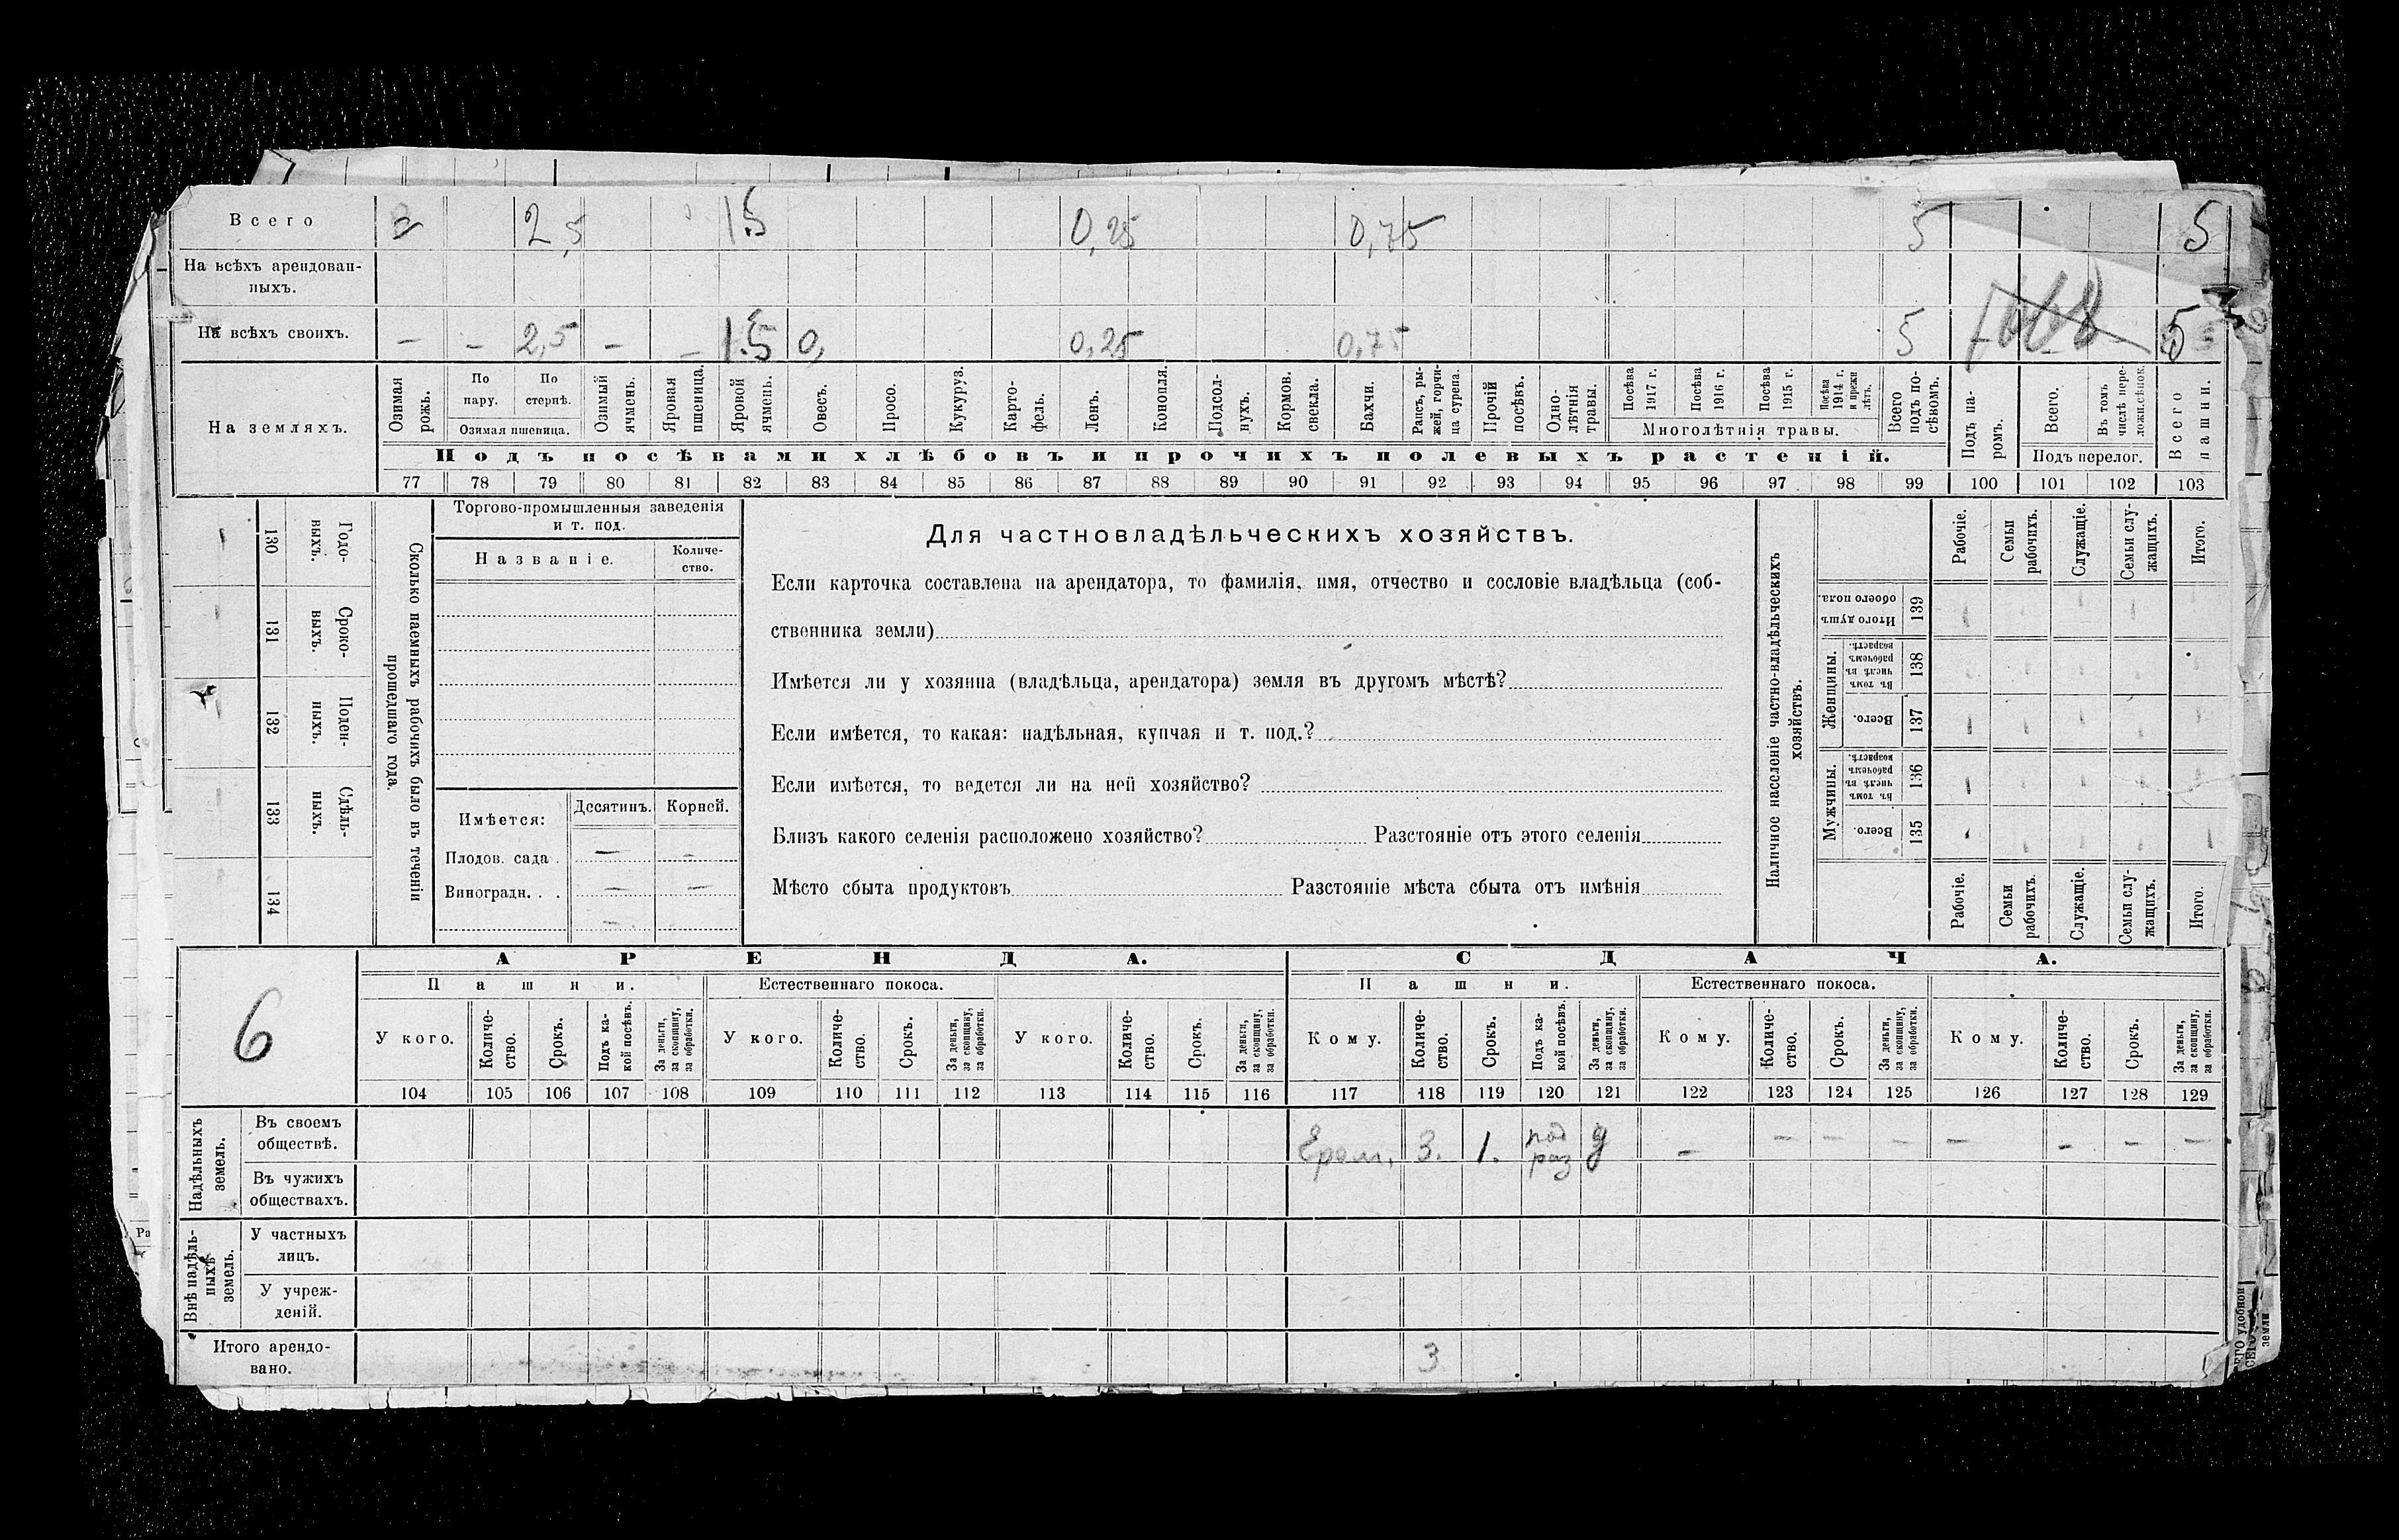 Всего 2,5 1.5 0,25 0,75 5 5
На всѣхъ арендован-
ныхъ.
На всѣхъ своихъ. – – 2,5 – – 1.5 0, 0,25 0,75 5 5
На земляхъ.
Озимая рожь.
По пару.
По стернѣ.
Озимая пшеница.
Озимый ячмень.
Яровая пшеница.
Яровой ячмень.
Овесъ.
Просо.
Кукуруз.
Карто-
фель.
Ленъ.
Конопля.
Подсол-
нухъ.
Кормов. свекла.
Бахчи.
Рапсъ, ры-
жей, горчи-
ца сурепа.
Прочій посѣвъ.
Одно-
лѣтнія травы.
Посѣва 1917 г.
Посѣва 1916 г.
Посѣва 1915 г.
Посѣва 1914 г. и прежн лѣтъ.
Многолѣтнія травы.
Всего подъ по-
сѣвомъ.
Подъ па-
ромъ.
Всего.
Въ томъ числѣ пере-
ложи.сѣнок.
Подъ перелог.
Всего пашни.
Подъ посѣвами хлѣбовъ и прочихъ полевыхъ растеній.
77 78 79 80 81 82 83 84 85 86 87 88 89 90 91 92 93 94 95 96 97 98 99 100 101 102 103
130 Годо-
ныхъ.
131 Сроко-
ныхъ.
132 Поден-
ныхъ.
133 Сдѣль-
ныхъ.
134
Сколько наемныхъ рабочихъ было въ теченіи
прошедшаго года.
Торгово-промышленныя заведенія
и т. под.
Названіе.
Количе-
ство.
Имѣется:
Десятинъ.
Корней.
Плодов. сада . — –
Виноградн. . . — —
Для частновладѣльческихъ хозяйствъ.
Если карточка составлена на арендатора, то фамилія, имя, отчество и сословіе владѣльца (соб-
ственника земли)
Имѣется ли у хозяина (владѣльца, арендатора) земля въ другомъ мѣстѣ?
Если имѣется, то какая: надѣльная, купчая и т. под.?
Если имѣется, то ведется ли на ней хозяйство?
Близъ какого селенія расположено хозяйство? Разстояніе отъ этого селенія
Мѣсто сбыта продуктовъ Разстояніе мѣста сбыта отъ имѣнія
Наличное населеніе частно-владѣльческихъ
хозяйствъ.
Рабочіе.
Семьи рабочихъ.
Служащіе.
Семьи слу-
жащихъ.
Итого.
Итого душъ обоего пола. 139
Женщины.
Въ томъ числѣ въ рабочемъ возрастѣ. 138
Всего. 137
Мужчины.
Въ томъ числѣ въ рабочемъ возрастѣ. 136
Всего. 135
Рабочіе.
Семьи рабочихъ.
Служащіе.
Семьи слу-
жащихъ.
Итого.
6
АРЕНДА.
СДАЧА.
Пашни.
Естественнаго покоса.
Пашни.
Естественнаго покоса.
У кого.
Количе-
ство.
Срокъ.
Подъ ка-
кой посѣвъ.
За деньги, за скопщину, за обработки.
У кого.
Количе-
ство.
Срокъ.
За деньги, за скопщину, за обработки.
У кого.
Количе-
ство.
Срокъ.
За деньги, за скопщину, за обработки.
Кому.
Количе-
ство.
Срокъ.
Подъ ка-
кой посѣвъ.
За деньги, за скопщину, за обработки.
Кому.
Количе-
ство.
Срокъ.
За деньги, за скопщину, за обработки.
Кому.
Количе-
ство.
Срокъ.
За деньги, за скопщину, за обработки.
104 105 106 107 108 109 110 111 112 113 114 115 116 117 118 119 120 121 122 123 124 125 126 127 128 129
Надѣльныхъ земель.
Въ своемъ
обществѣ.
3. 1. под
раз – – – – – – – –
Въ чужихъ
обществахъ.
Внѣ надѣль-
ныхъ земель.
У частныхъ
лицъ.
У учреж-
деній.
Итого арендо-
вано. 3